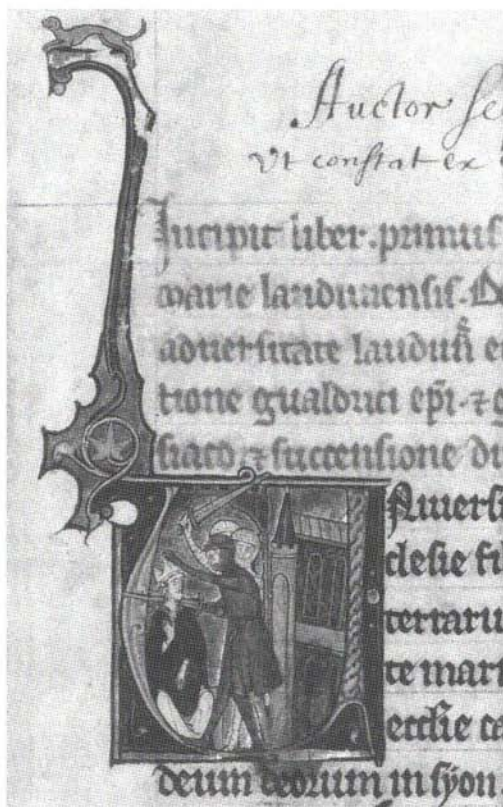 Auctor
vt constat ex
Incipit liber.primus
marie laudunensis.
aduersitate lauduñ
tione gualdrici ep̃i.⁊
siaco.⁊ successione
clesie fi
te mar
eccl̃ie ca
deum deorum in syon